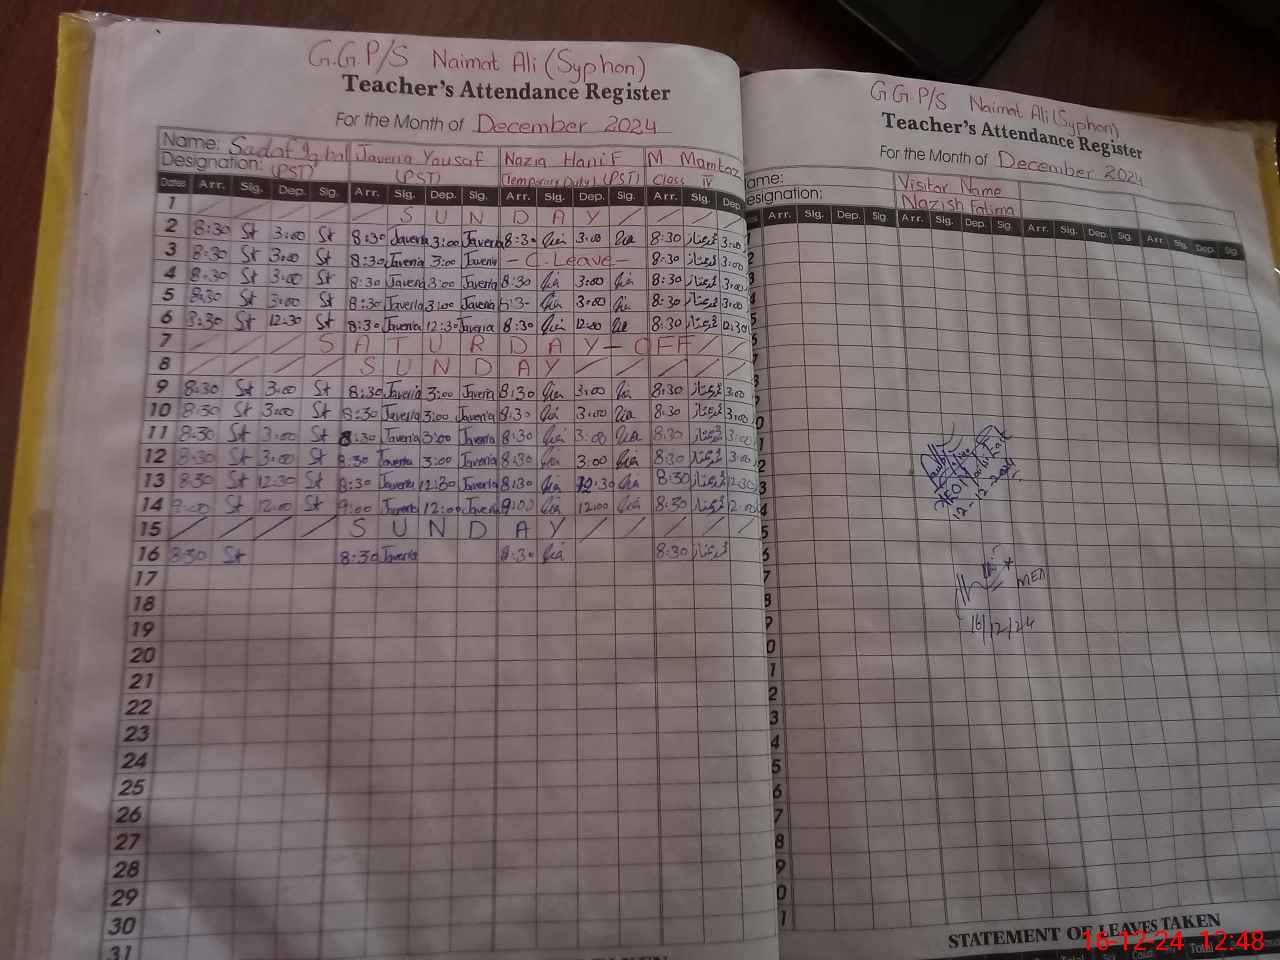 G.G.P/S Naimat Ali (Syphon)
Teacher's Attendance Register
For the Month of December 2024
Name: Sadaf Iqbal Javeria Yousaf Nazia Hanif M Mamtaz
Designation: (PST) (PST) (Temporary Duty) (PST) Class IV
Dates Arr. Sig. Dep. Sig. Arr. Sig. Dep. Sig. Arr. Sig. Dep. Sig. Arr. Sig. Dep.
1 S U N D A Y
2 8:30 St 3:00 St 8:30 Javeria 3:00 Javeria 8:30 3:00 8:30 ممتاز 3:00
3 8:30 St 3:00 St 8:30 Javeria 3:00 Javeria - C.Leave - 8:30 ممتاز 3:00
4 8:30 St 3:00 St 8:30 Javeria 3:00 Javeria 8:30 3:00 8:30 ممتاز 3:00
5 8:30 St 3:00 St 8:30 Javeria 3:00 Javeria 8:30 3:00 8:30 ممتاز 3:00
6 8:30 St 12:30 St 8:30 Javeria 12:30 Javeria 8:30 12:00 8:30 ممتاز 12:30
7 S A T U R D A Y - O F F
8 S U N D A Y
9 8:30 St 3:00 St 8:30 Javeria 3:00 Javeria 8:30 3:00 8:30 ممتاز 3:00
10 8:30 St 3:00 St 8:30 Javeria 3:00 Javeria 8:30 3:00 8:30 ممتاز 3:00
11 8:30 St 3:00 St 8:30 Javeria 3:00 Javeria 8:30 3:00 8:30 ممتاز 3:00
12 8:30 St 3:00 St 8:30 Javeria 3:00 Javeria 8:30 3:00 8:30 ممتاز 3:00
13 8:30 St 12:30 St 8:30 Javeria 12:30 Javeria 8:30 12:30 8:30 ممتاز 12:30
14 9:00 St 12:00 St 9:00 Javeria 12:00 Javeria 9:00 12:00 8:30 ممتاز 2:00
15 S U N D A Y
16 8:30 St 8:30 Javeria 8:30 8:30 ممتاز
17
18
19
20
21
22
23
24
25
26
27
28
29
30
31
G.G.P/S Naimat Ali (Syphon)
Teacher's Attendance Register
For the Month of December 2024
ame: Visitor Name
esignation: Nazish Fatima
Arr. Sig. Dep. Sig. Arr. Sig. Dep. Sig. Arr. Sig. Dep. Sig. Arr. Sig. Dep. Sig.
12-12-2024
MEA
16/12/24
STATEMENT OF LEAVES TAKEN
16-12-24 12:48